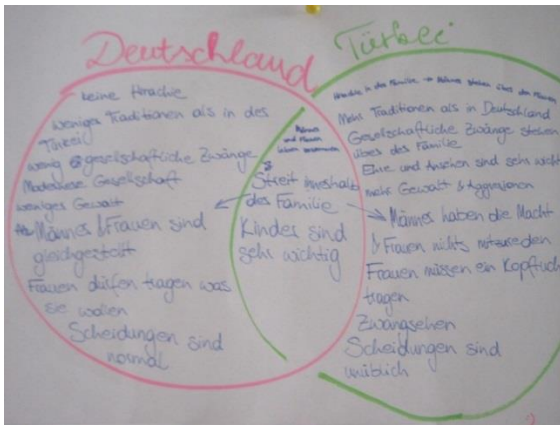 Deutschland
Türkei
keine Hirachie
weniger Traditionen als in der
Türkei
wenig gesellschaftliche Zwänge
Moderne Gesellschaft
weniger Gewalt
Männer & Frauen sind
gleichgestellt
Frauen dürfen tragen was
sie wollen
Scheidungen sind
normal
Männer
und Frauen
leben zusammen
Streit innerhalb
der Familie
Kinder sind
sehr wichtig
in der Familie → Männer stehen über den Frauen
Mehr Traditionen als in Deutschland
Gesellschaftliche Zwänge stehen
über der Familie
Ehre und Ansehen sind sehr wicht
mehr Gewalt & Aggressionen
Männer haben die Macht
& Frauen nichts mitzureden
Frauen müssen ein Kopftuch
tragen
Zwangsehen
Scheidungen sind
unüblich